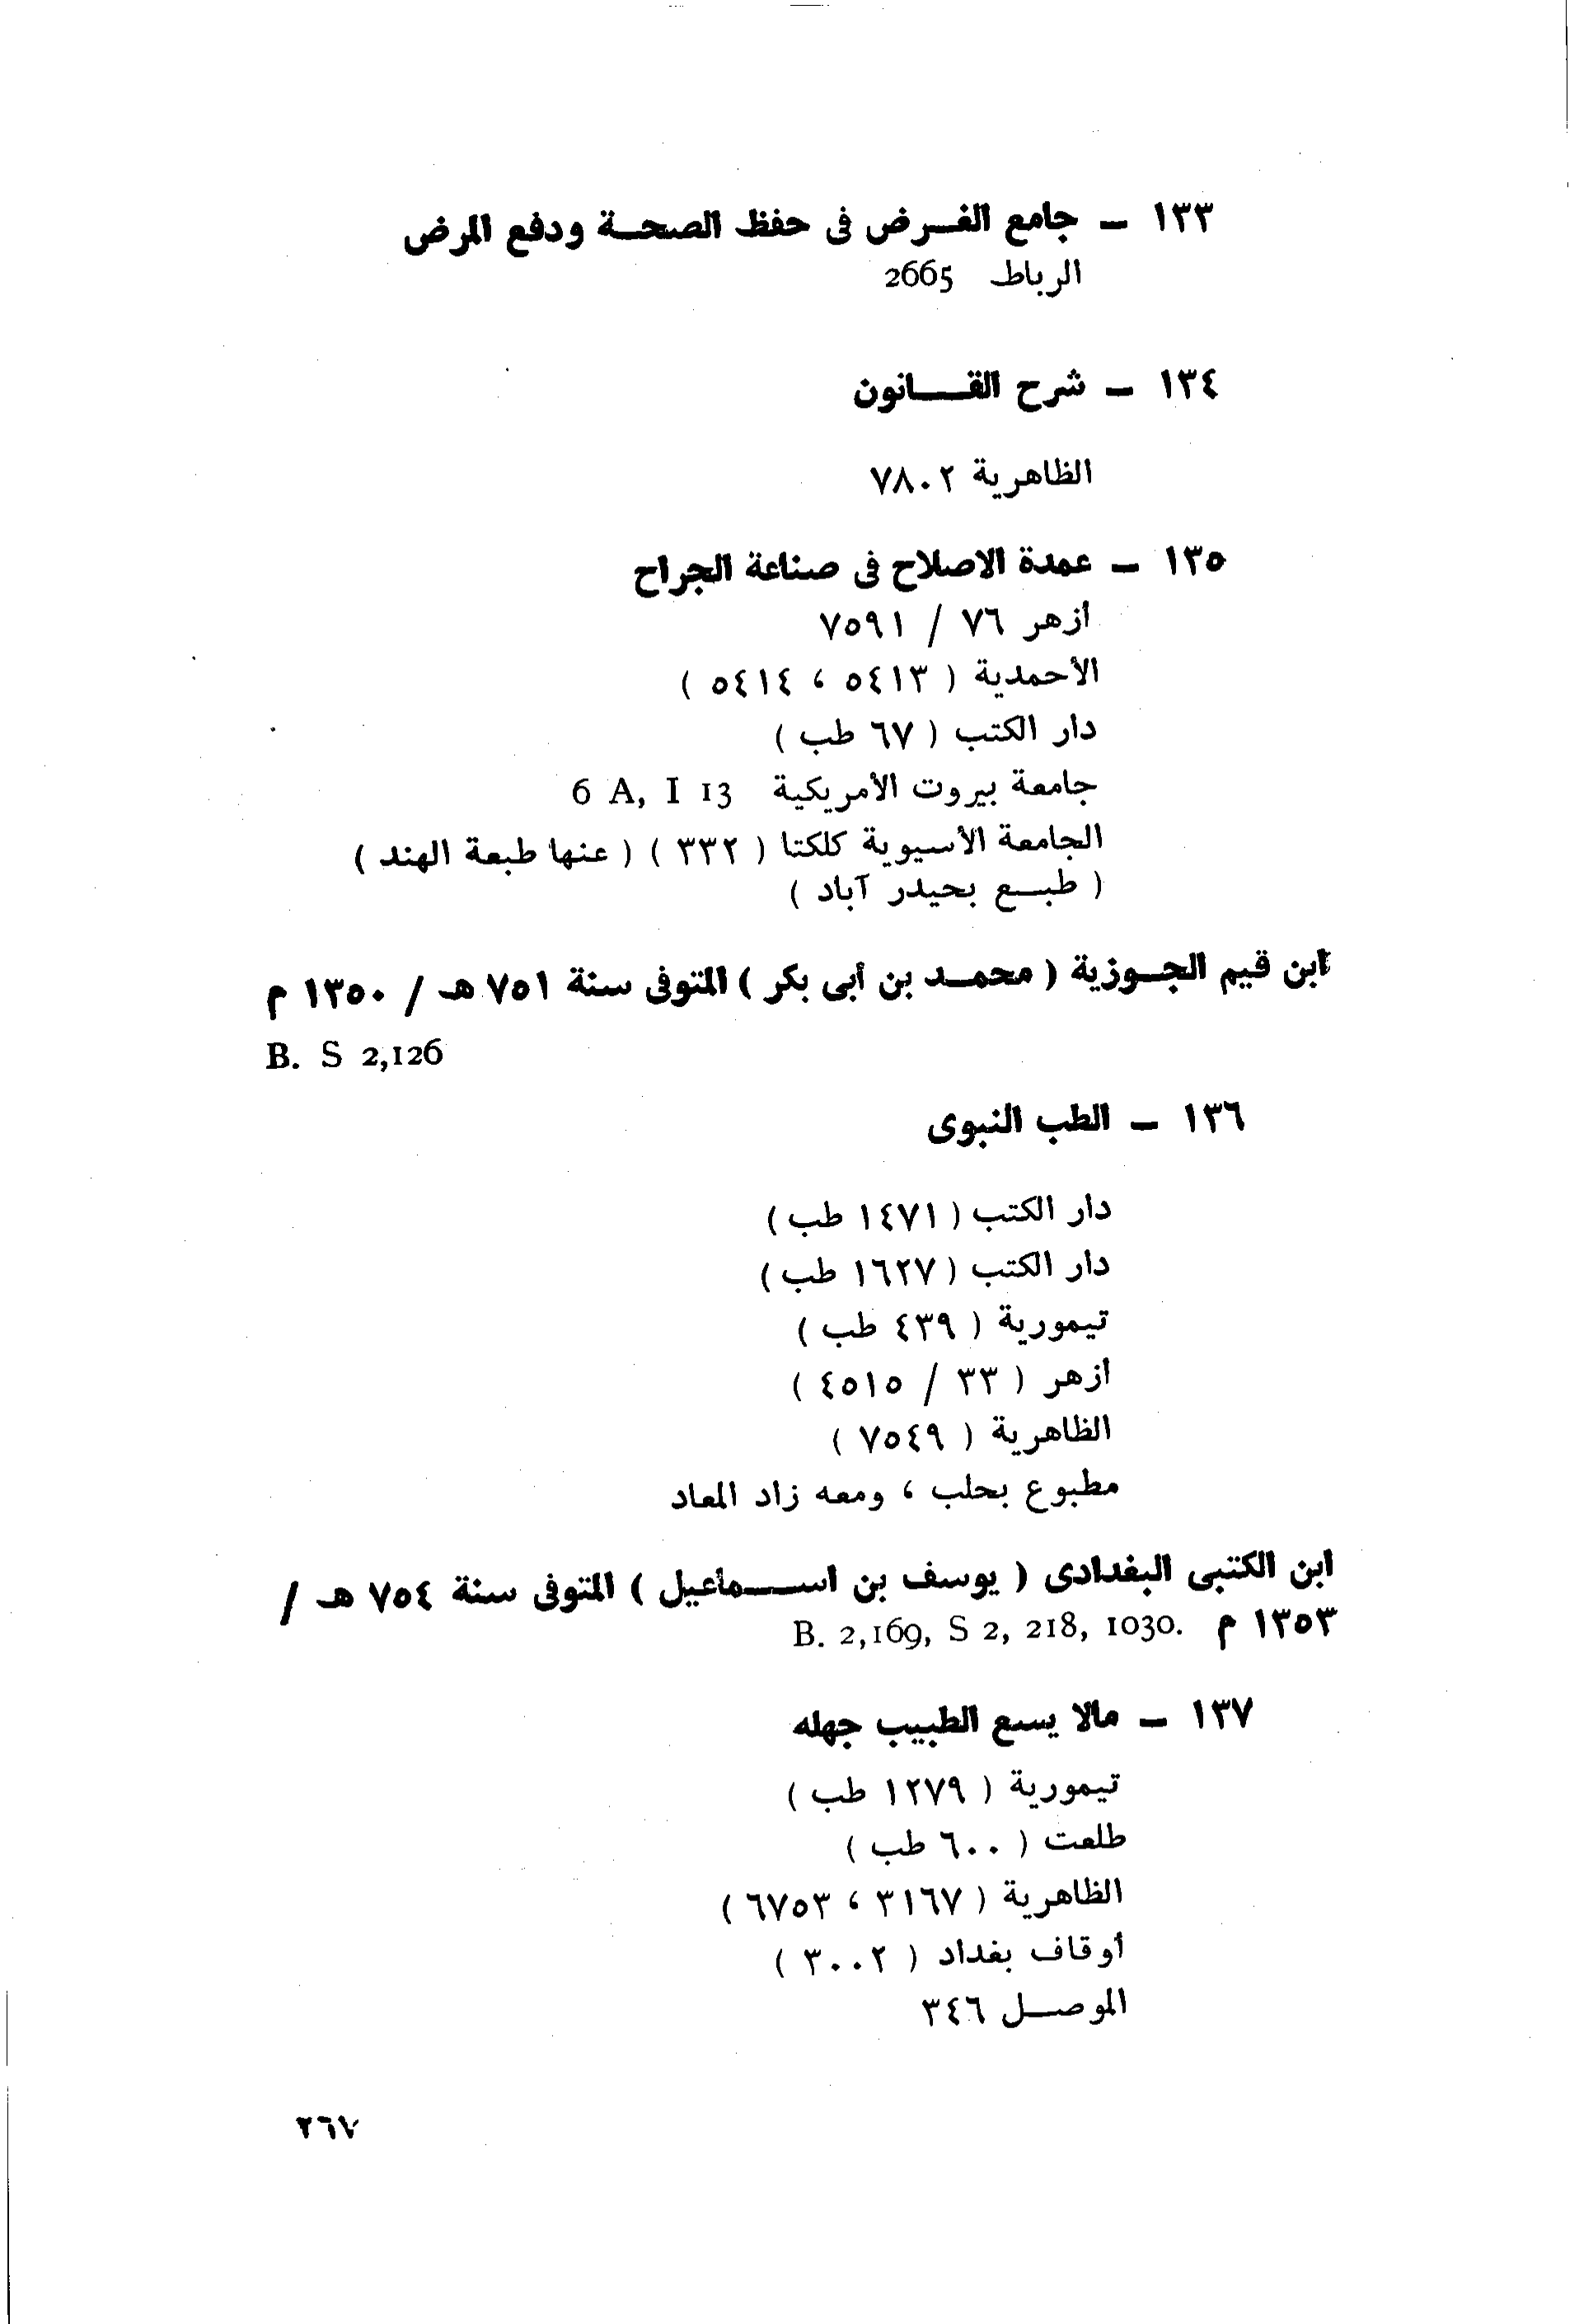 ١٣٣ – جامع الغرض فى حفظ الصحة ودفع المرض
الرباط 2665
١٣٤ – شرح القانون
الظاهرية ٧٨٠٢
١٣٥ – عمدة الاصلاح فى صناعة الجراح
أزهر ٧٦ / ٧٥٩١
الأحمدية ( ٥٤١٣ ، ٥٤١٤ )
دار الكتب ( ٦٧ طب )
جامعة بيروت الأمريكية 6 A, I 13
الجامعة الأسيوية كلكتا ( ٣٣٢ ) ( عنها طبعة الهند )
( طبع بحيدر آباد )
ابن قيم الجوزية ( محمد بن أبى بكر ) المتوفى سنة ٧٥١ هـ / ١٣٥٠ م
B. S 2,126
١٣٦ – الطب النبوى
دار الكتب ( ١٤٧١ طب )
دار الكتب ( ١٦٢٧ طب )
تيمورية ( ٤٣٩ طب )
أزهر ( ٣٣ / ٤٥١٥ )
الظاهرية ( ٧٥٤٩ )
مطبوع بحلب ، ومعه زاد المعاد
ابن الكتبى البغدادى ( يوسف بن اسماعيل ) المتوفى سنة ٧٥٤ هـ /
١٣٥٣ م B. 2,169, S 2, 218, 1030.
١٣٧ – مالا يسع الطبيب جهله
تيمورية ( ١٢٧٩ طب )
طلعت ( ٦٠٠ طب )
الظاهرية ( ٣١٦٧ ، ٦٧٥٣ )
أوقاف بغداد ( ٣٠٠٢ )
الموصل ٣٤٦
٢٦٧